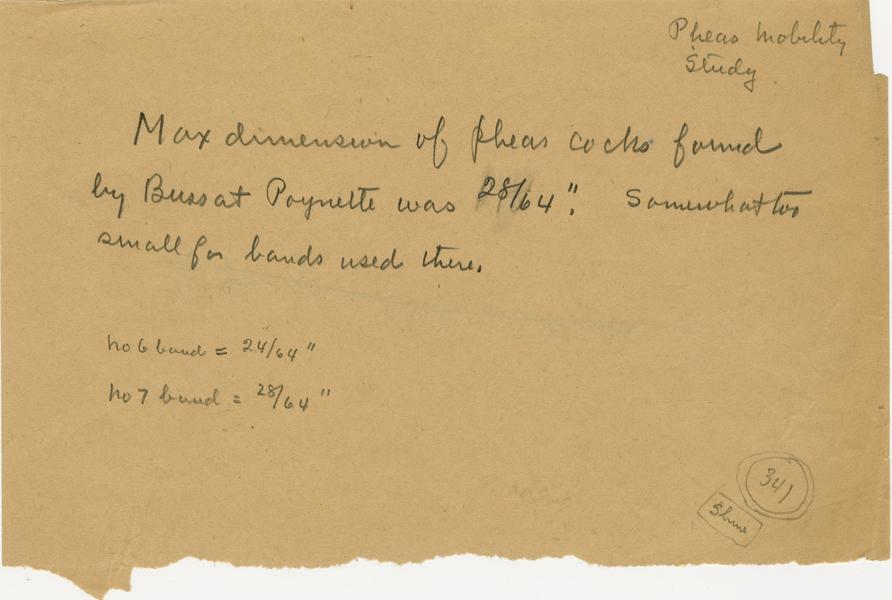 Pheas Mobility
Study
Max dimension of pheas cocks found
by Buss at Poynette was 28/64". Somewhat too
small for bands used there.
No 6 band = 24/64"
No 7 band = 28/64"
341